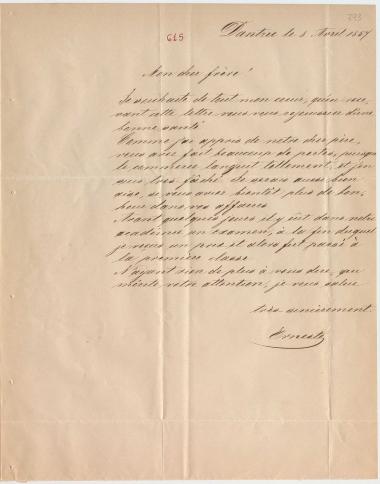 293
645
Dantzic le 8 Avril 1857
Mon cher frère!
Je souhaite de tout mon coeur, qu'en rece-
vant cette lettre vous vous rejouissez d'une
bonne santé.
Comme j'ai appris de notre cher père,
vous avez fait beaucoup de pertes, puisque
le commerce languit tellement, et j'en
suis très fâché. Je serais aussi bien
aise, si vous aviez bientôt plus de bon-
heur dans vos affaires.
Avant quelques jours il y eût dans notre
académie un examen, à la fin duquel
je reçus un prix et alors fut passé à
la première classe.
N'ayant rien de plus à vous dire, qui
mérite votre attention, je vous salue
très sincèrement.
Ernest